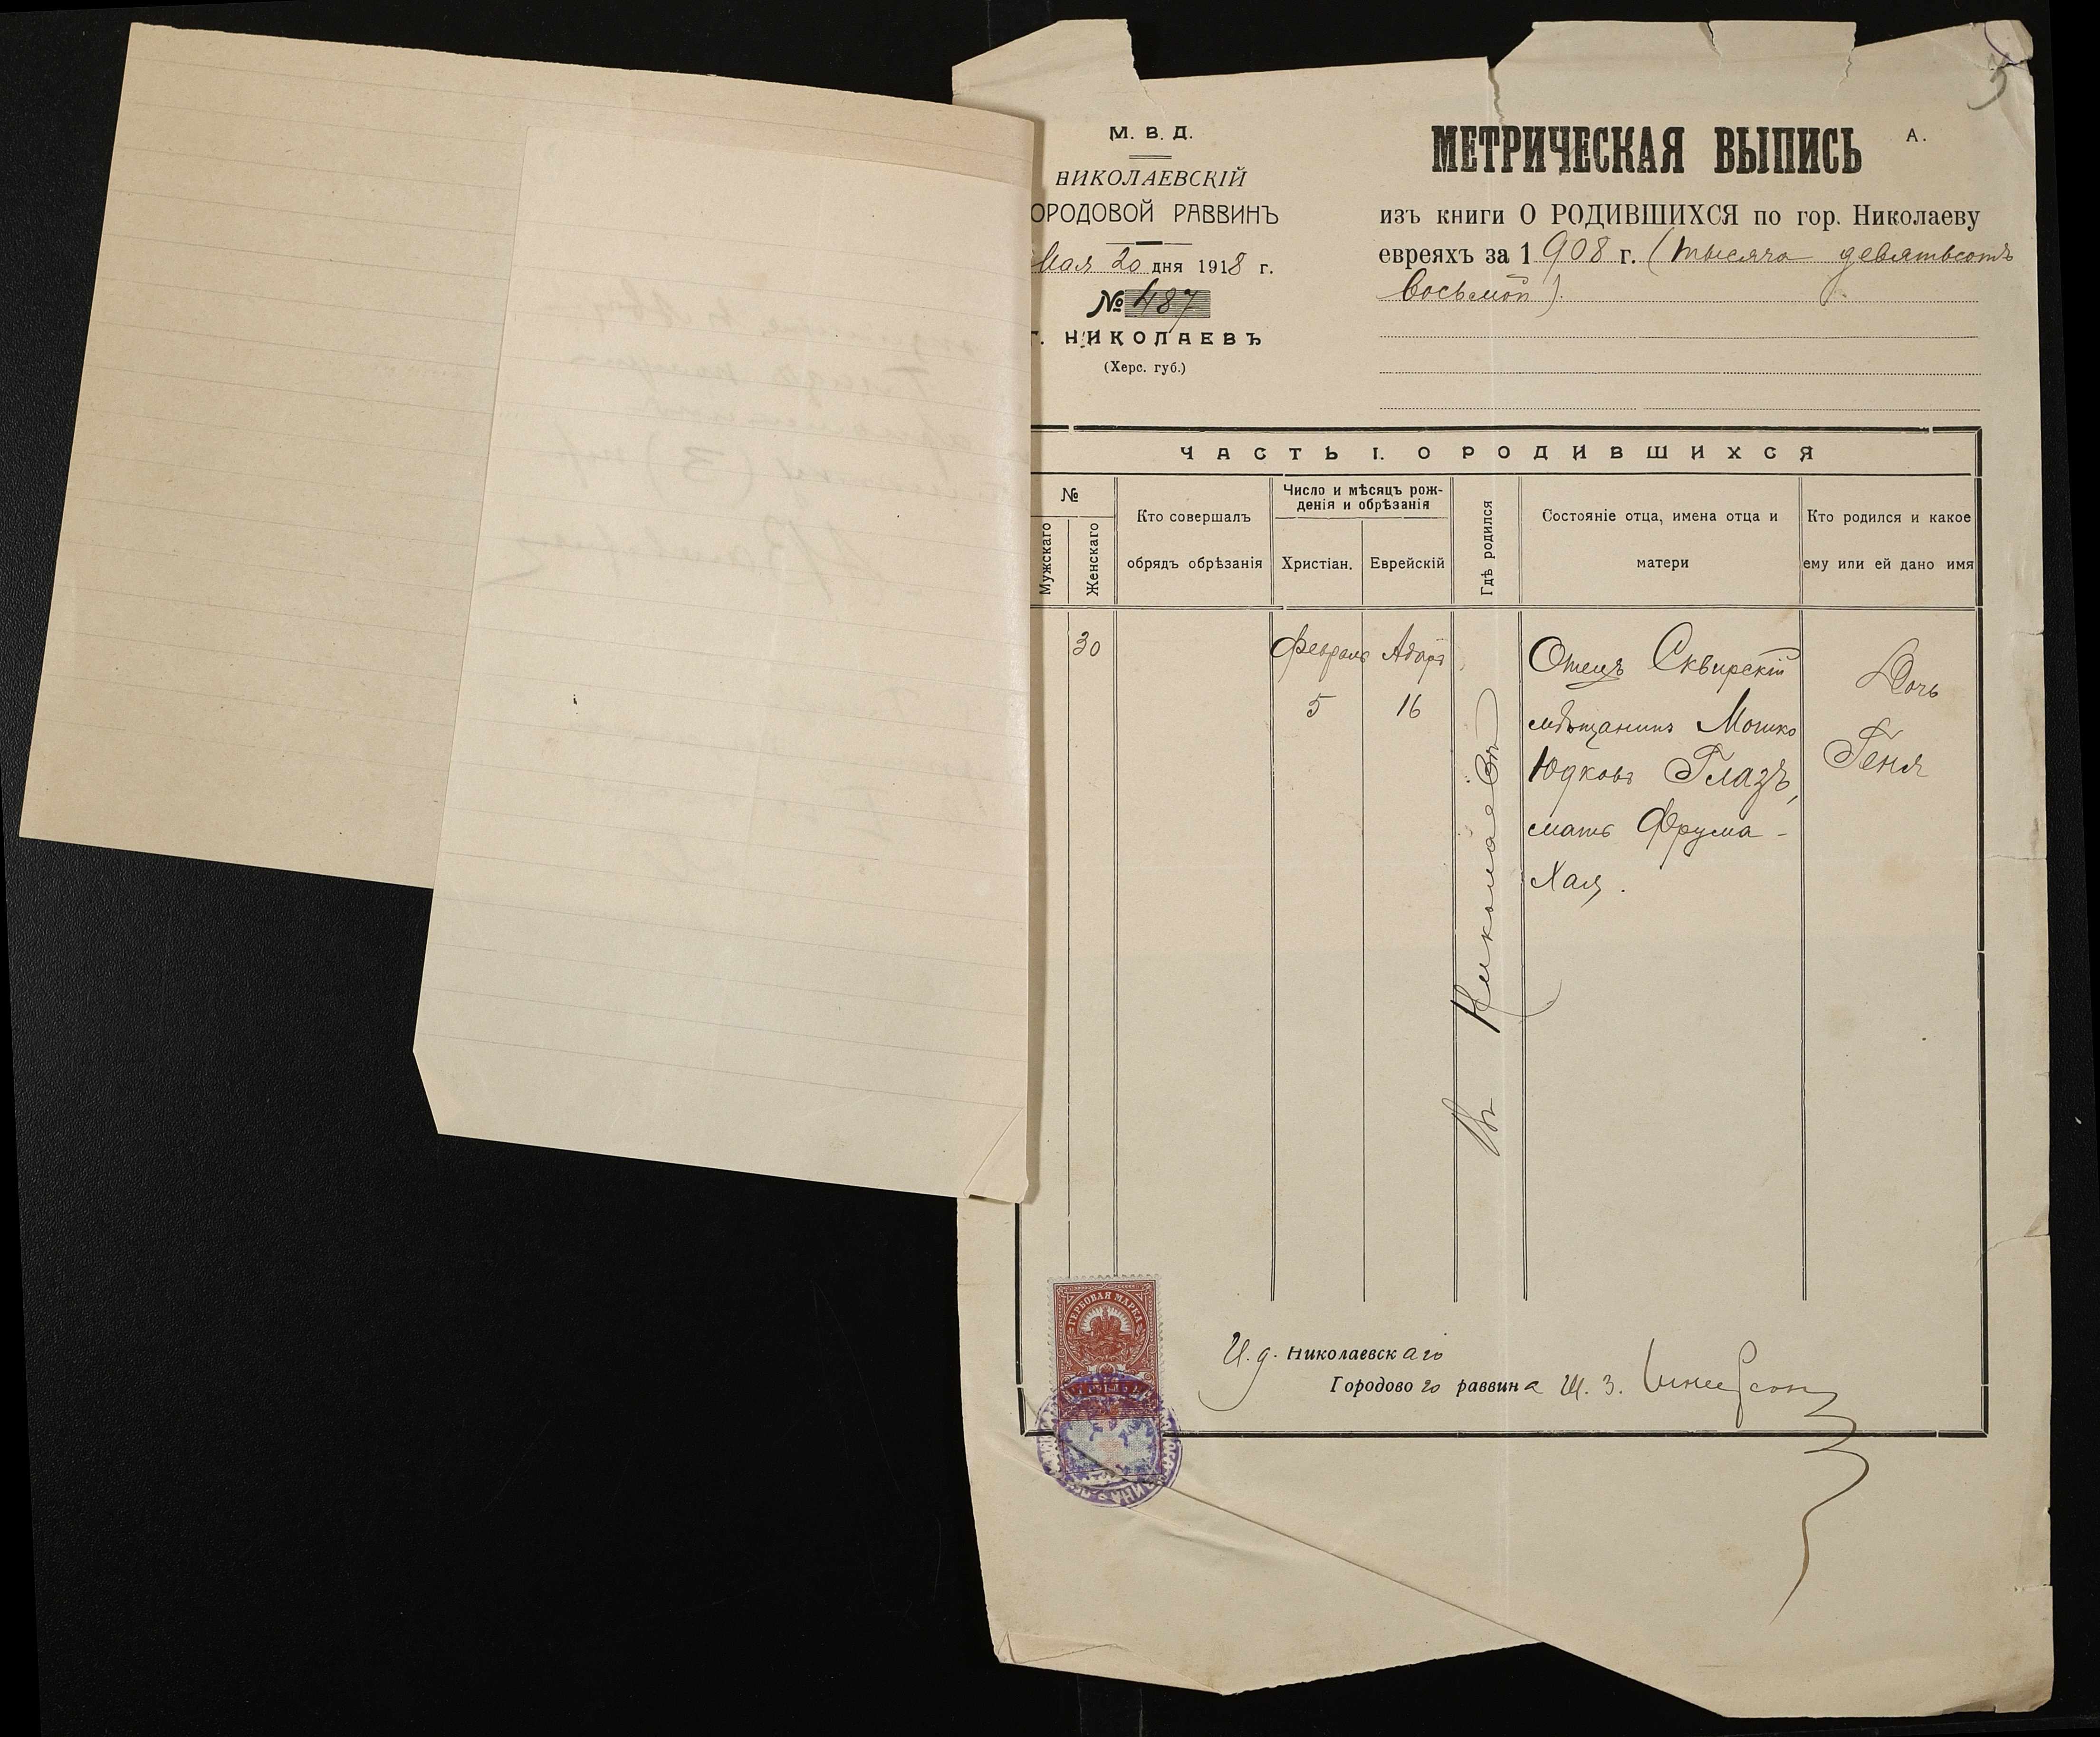 М. В. Д.
НИКОЛАЕВСКІЙ
ОРОДОВОЙ РАВВИНЪ
Мая 20 дня 1918 г.
№ 487
Г. НИКОЛАЕВЪ
(Херс. губ.)
3
МЕТРИЧЕСКАЯ ВЫПИСЬ А.
изъ книги О РОДИВШИХСЯ по гор. Николаеву
евреяхъ за 1908 г. (тысяча девятьсотъ
восьмой).
ЧАСТЬ I. О РОДИВШИХСЯ
№
Мужскаго
Женскаго
Кто совершалъ
обрядъ обрѣзанія
Число и мѣсяцъ рож-
денія и обрѣзанія
Христіан.
Еврейскій
Гдѣ родился
Состояніе отца, имена отца и
матери
Кто родился и какое
ему или ей дано имя
30
Февраль
5
Адаръ
16
Въ Николаевѣ
Отецъ Сквирскій
мѣщанинъ Мошко
Юдковъ Глазъ,
мать Фрума-
Хая.
Дочь
Геня
И. д. Николаевскаго
Городового раввина Ш. З. Шнеерсонъ
ГЕРБОВАЯ МАРКА